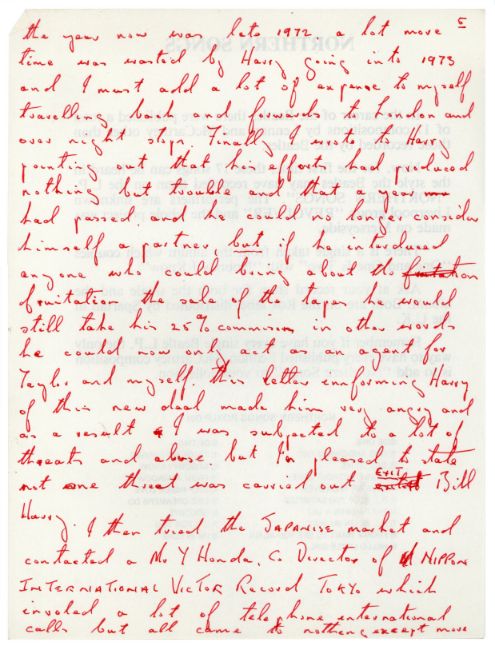 5
the year now was late 1972 a lot more
time was wasted by Harry going into 1973
and I must add a lot of expense to myself
travelling back and forwards to London and
over night stops. Finally I wrote to Harry
pointing out that his efforts had produced
nothing but trouble and that a year
had passed, and he could no longer consider
himself a partner, but if he introduced
anyone who could bring about the
fruitation the sale of the tapes he would
still take his 25% commision, in other words
he could now only act as an agent for
Taylor and myself. this letter ennforming Harry
of this new deal made him very angry and
as a result I was subjected to a lot of
threats and abuse. but I'm pleased to state
not one threat was carried out EXIT Bill
Harry. I then tried the JAPANISE market and
contacted a Mr Y Honda, Co Director of NIPPON
INTERNATIONAL VICTOR Record TOKYO which
involed a lot of telephone enternational
calls but all came to nothing except more